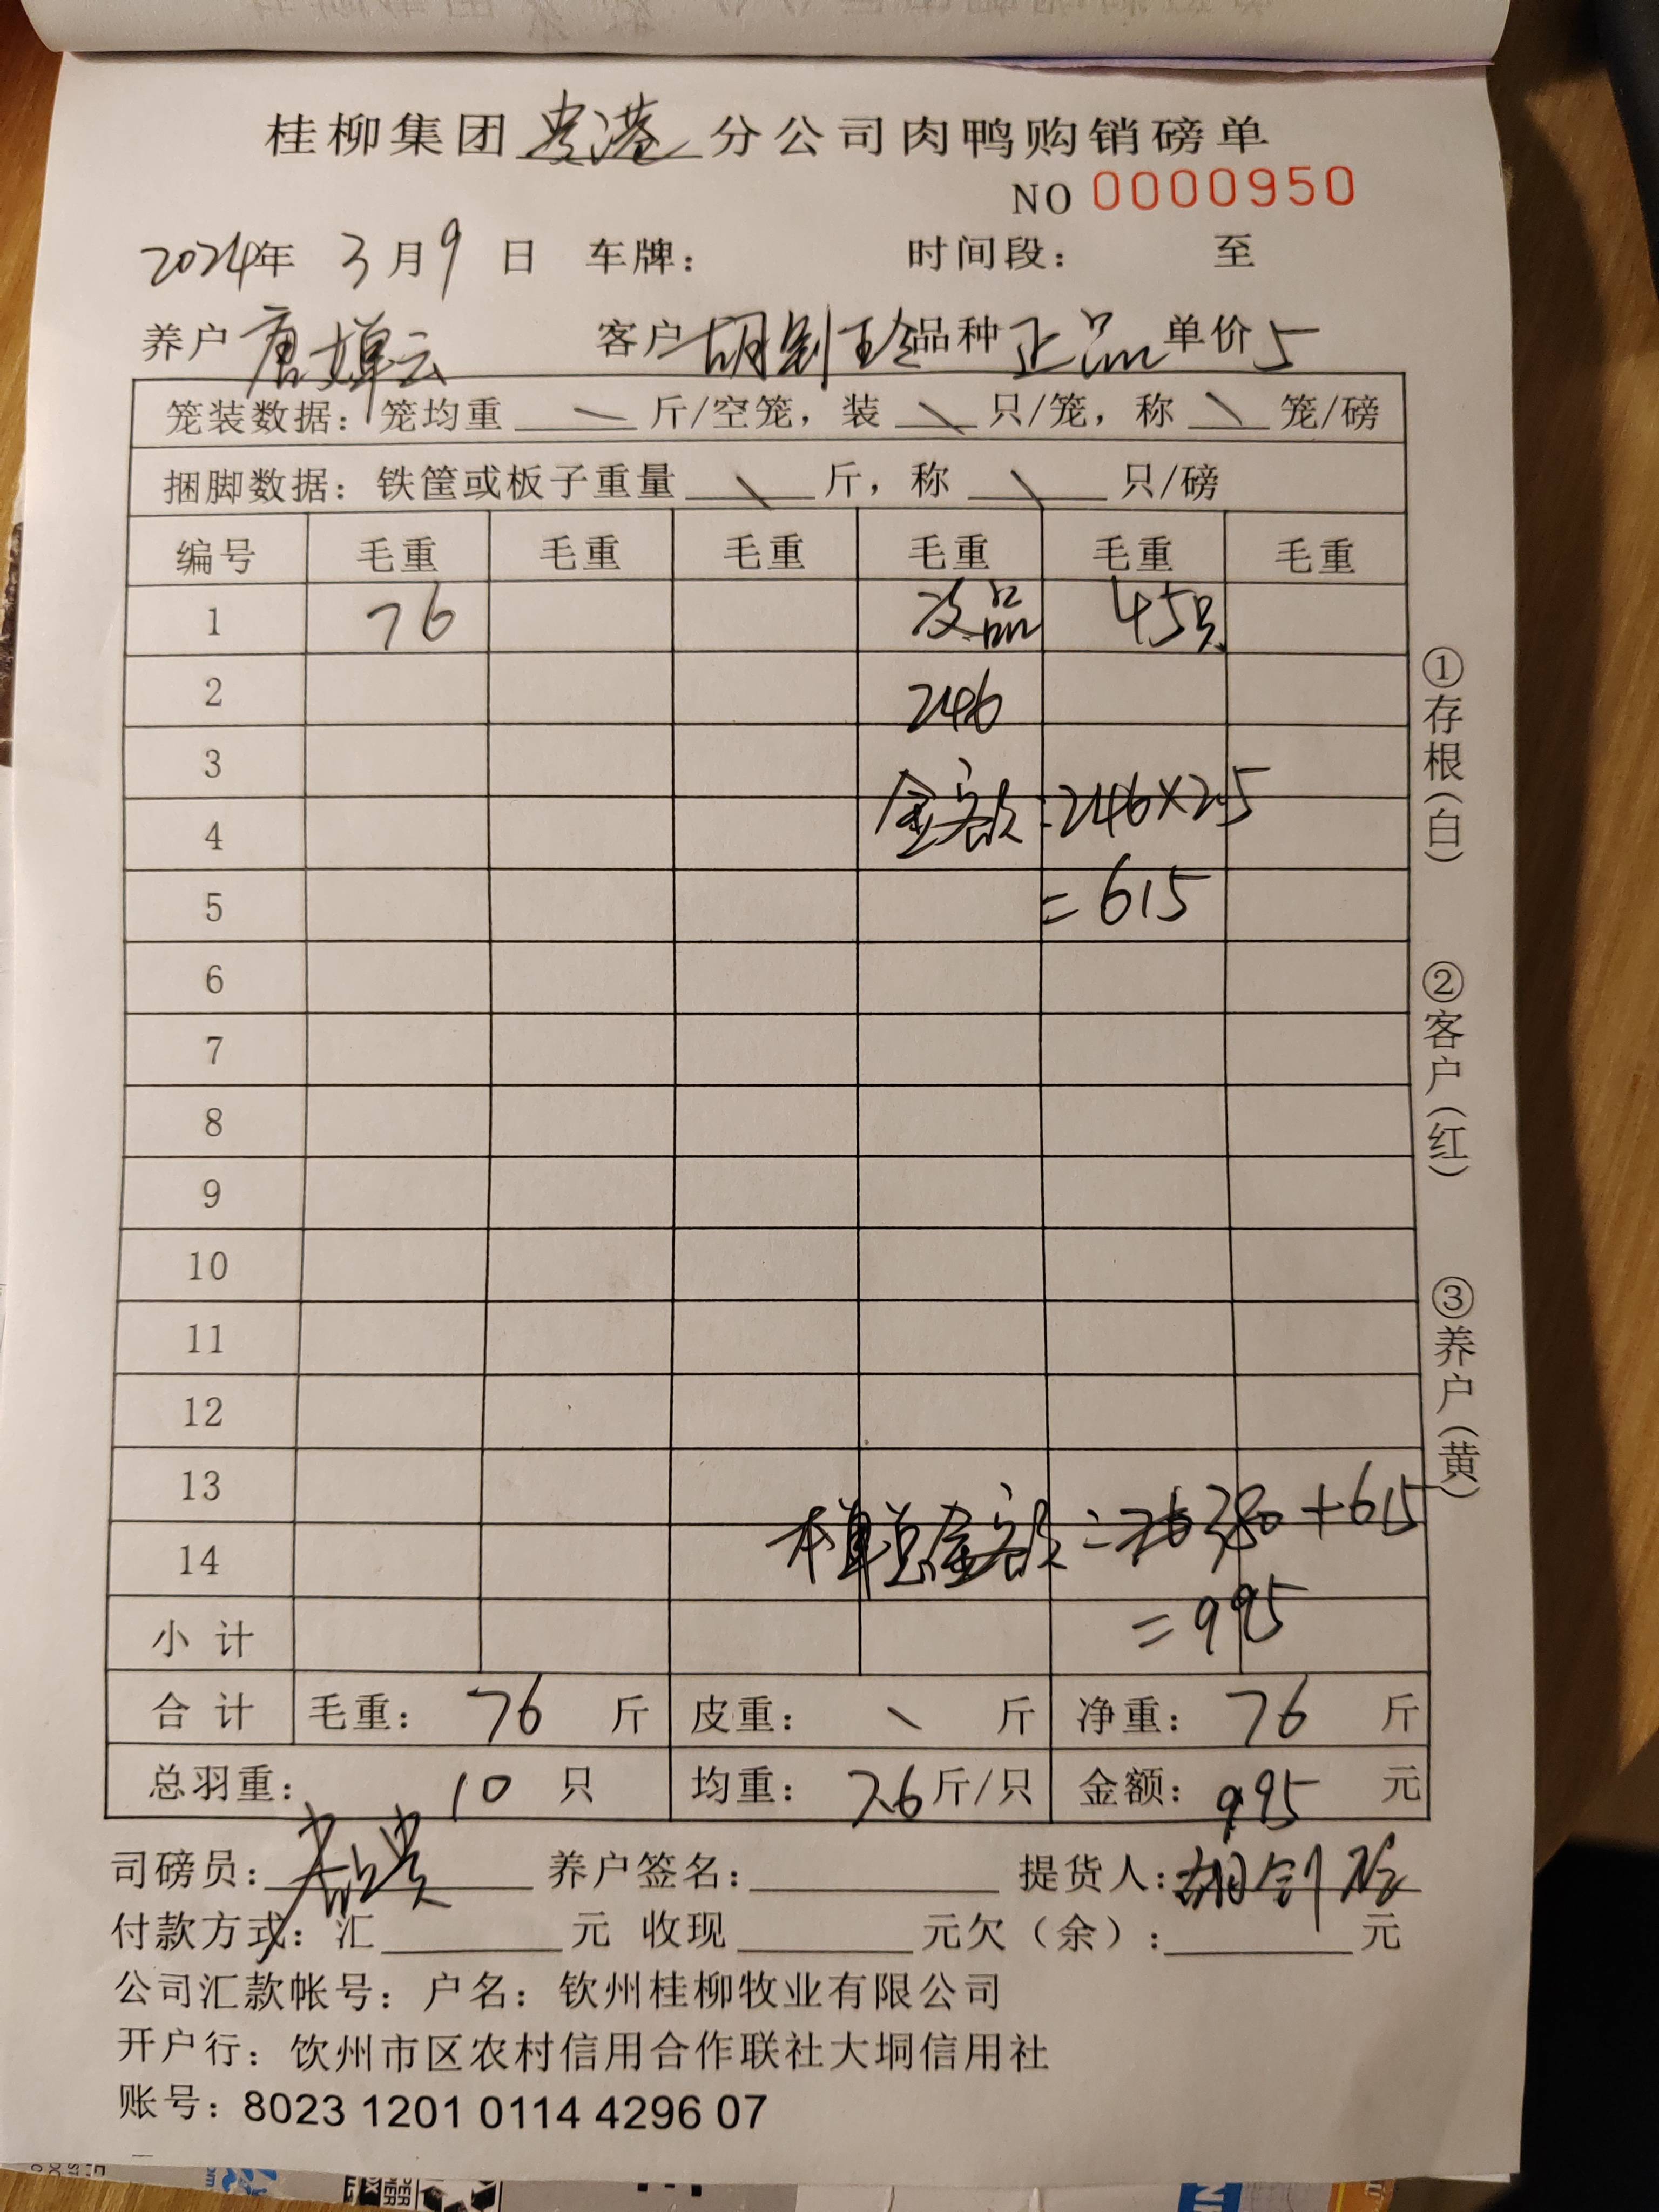 桂柳集团贵港分公司肉鸭购销磅单
NO 0000950
2024年 3月9日 车牌： 时间段： 至
养户 唐婵云 客户 胡剑玲 品种 正品 单价 5
笼装数据：笼均重 \ 斤/空笼，装 \ 只/笼，称 \ 笼/磅
捆脚数据：铁筐或板子重量 \ 斤，称 \ 只/磅
编号 毛重 毛重 毛重 毛重 毛重 毛重
1 76 次品 45只
2 246
3
4 金额：246×2.5
5 =615
6
7
8
9
10
11
12
13
14 本单总金额=380+615
小计 =995
合计 毛重： 76 斤 皮重： \ 斤 净重： 76 斤
总羽重： 10 只 均重： 7.6 斤/只 金额： 995 元
司磅员： 养户签名： 提货人：胡剑玲
付款方式：汇 元 收现 元欠（余）： 元
公司汇款帐号：户名：钦州桂柳牧业有限公司
开户行：饮州市区农村信用合作联社大垌信用社
账号：8023 1201 0114 4296 07
①存根（白）
②客户（红）
③养户（黄）